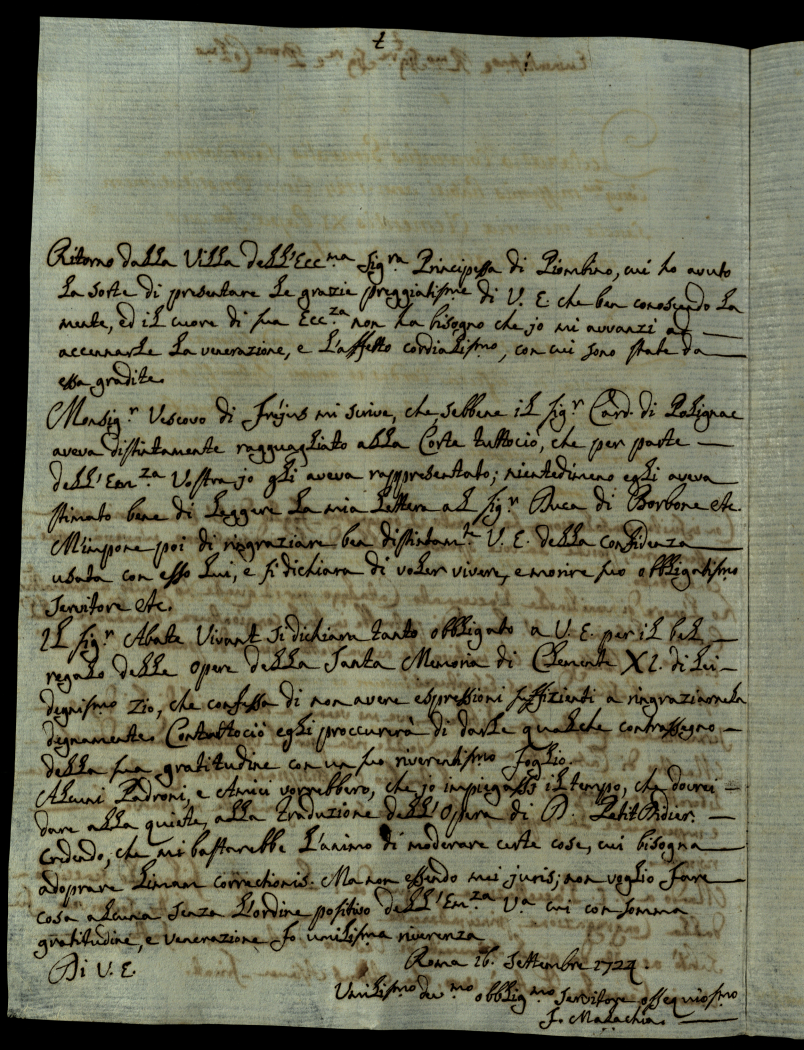 Ritorno dalla Villa dell'Ecc.ma Sig.ra Principessa di Piombino, cui ho avuto
la sorte di presentare le grazie preggiatisme di V. E. che ben conoscendo la
mente, ed il cuore di sua Ecc.za non ha bisogno che jo mi avvanzi ad
accennarle la venerazione, e l'affetto cordialismo, con cui sono state da
essa gradite.
Monsig.r Vescovo di Fréjus mi scrive, che sebbene il Sig.r Card. di Polignac
aveva distintamente ragguagliato alla Corte tuttociò, che per parte
dell'Em.za Vostra jo gli aveva rappresentato; nientedimeno egli aveva
stimato bene di leggere la mia lettera al Sig.r Duca di Borbone etc.
M'impone poi di ringraziare ben distintam.te V. E. della confidenza
usata con esso lui, e si dichiara di voler vivere, e morire suo obbligatismo
servitore etc.
Il Sig.r Abate Vivant si dichiara tanto obbligato a V. E. per il bel
regalo delle opere della Santa Memoria di Clemente XI. di lei
degnismo zio, che confessa di non avere espressioni suffizienti a ringraziarnela
degnamente. Contuttociò egli proccurerà di darle qualche contrassegno
della sua gratitudine con un suo riverentismo foglio.
Alcuni Padroni, e Amici vorrebbero, che jo impiegassi il tempo, che dovrei
dare alla quiete, alla traduzione dell'Opera di D. Petit Didier:
credendo, che mi bastarebbe l'animo di moderare certe cose, cui bisogna
adoprare limam correctionis. Ma non essendo mei juris; non voglio fare
cosa alcuna senza l'ordine positivo dell'Em.za V.a cui con somma
gratitudine, e venerazione fo umilisma riverenza
Di V. E. Roma 16. Settembre 1724.
Umilismo dev.mo obblig.mo servitore ossequiosmo
F. Malachia